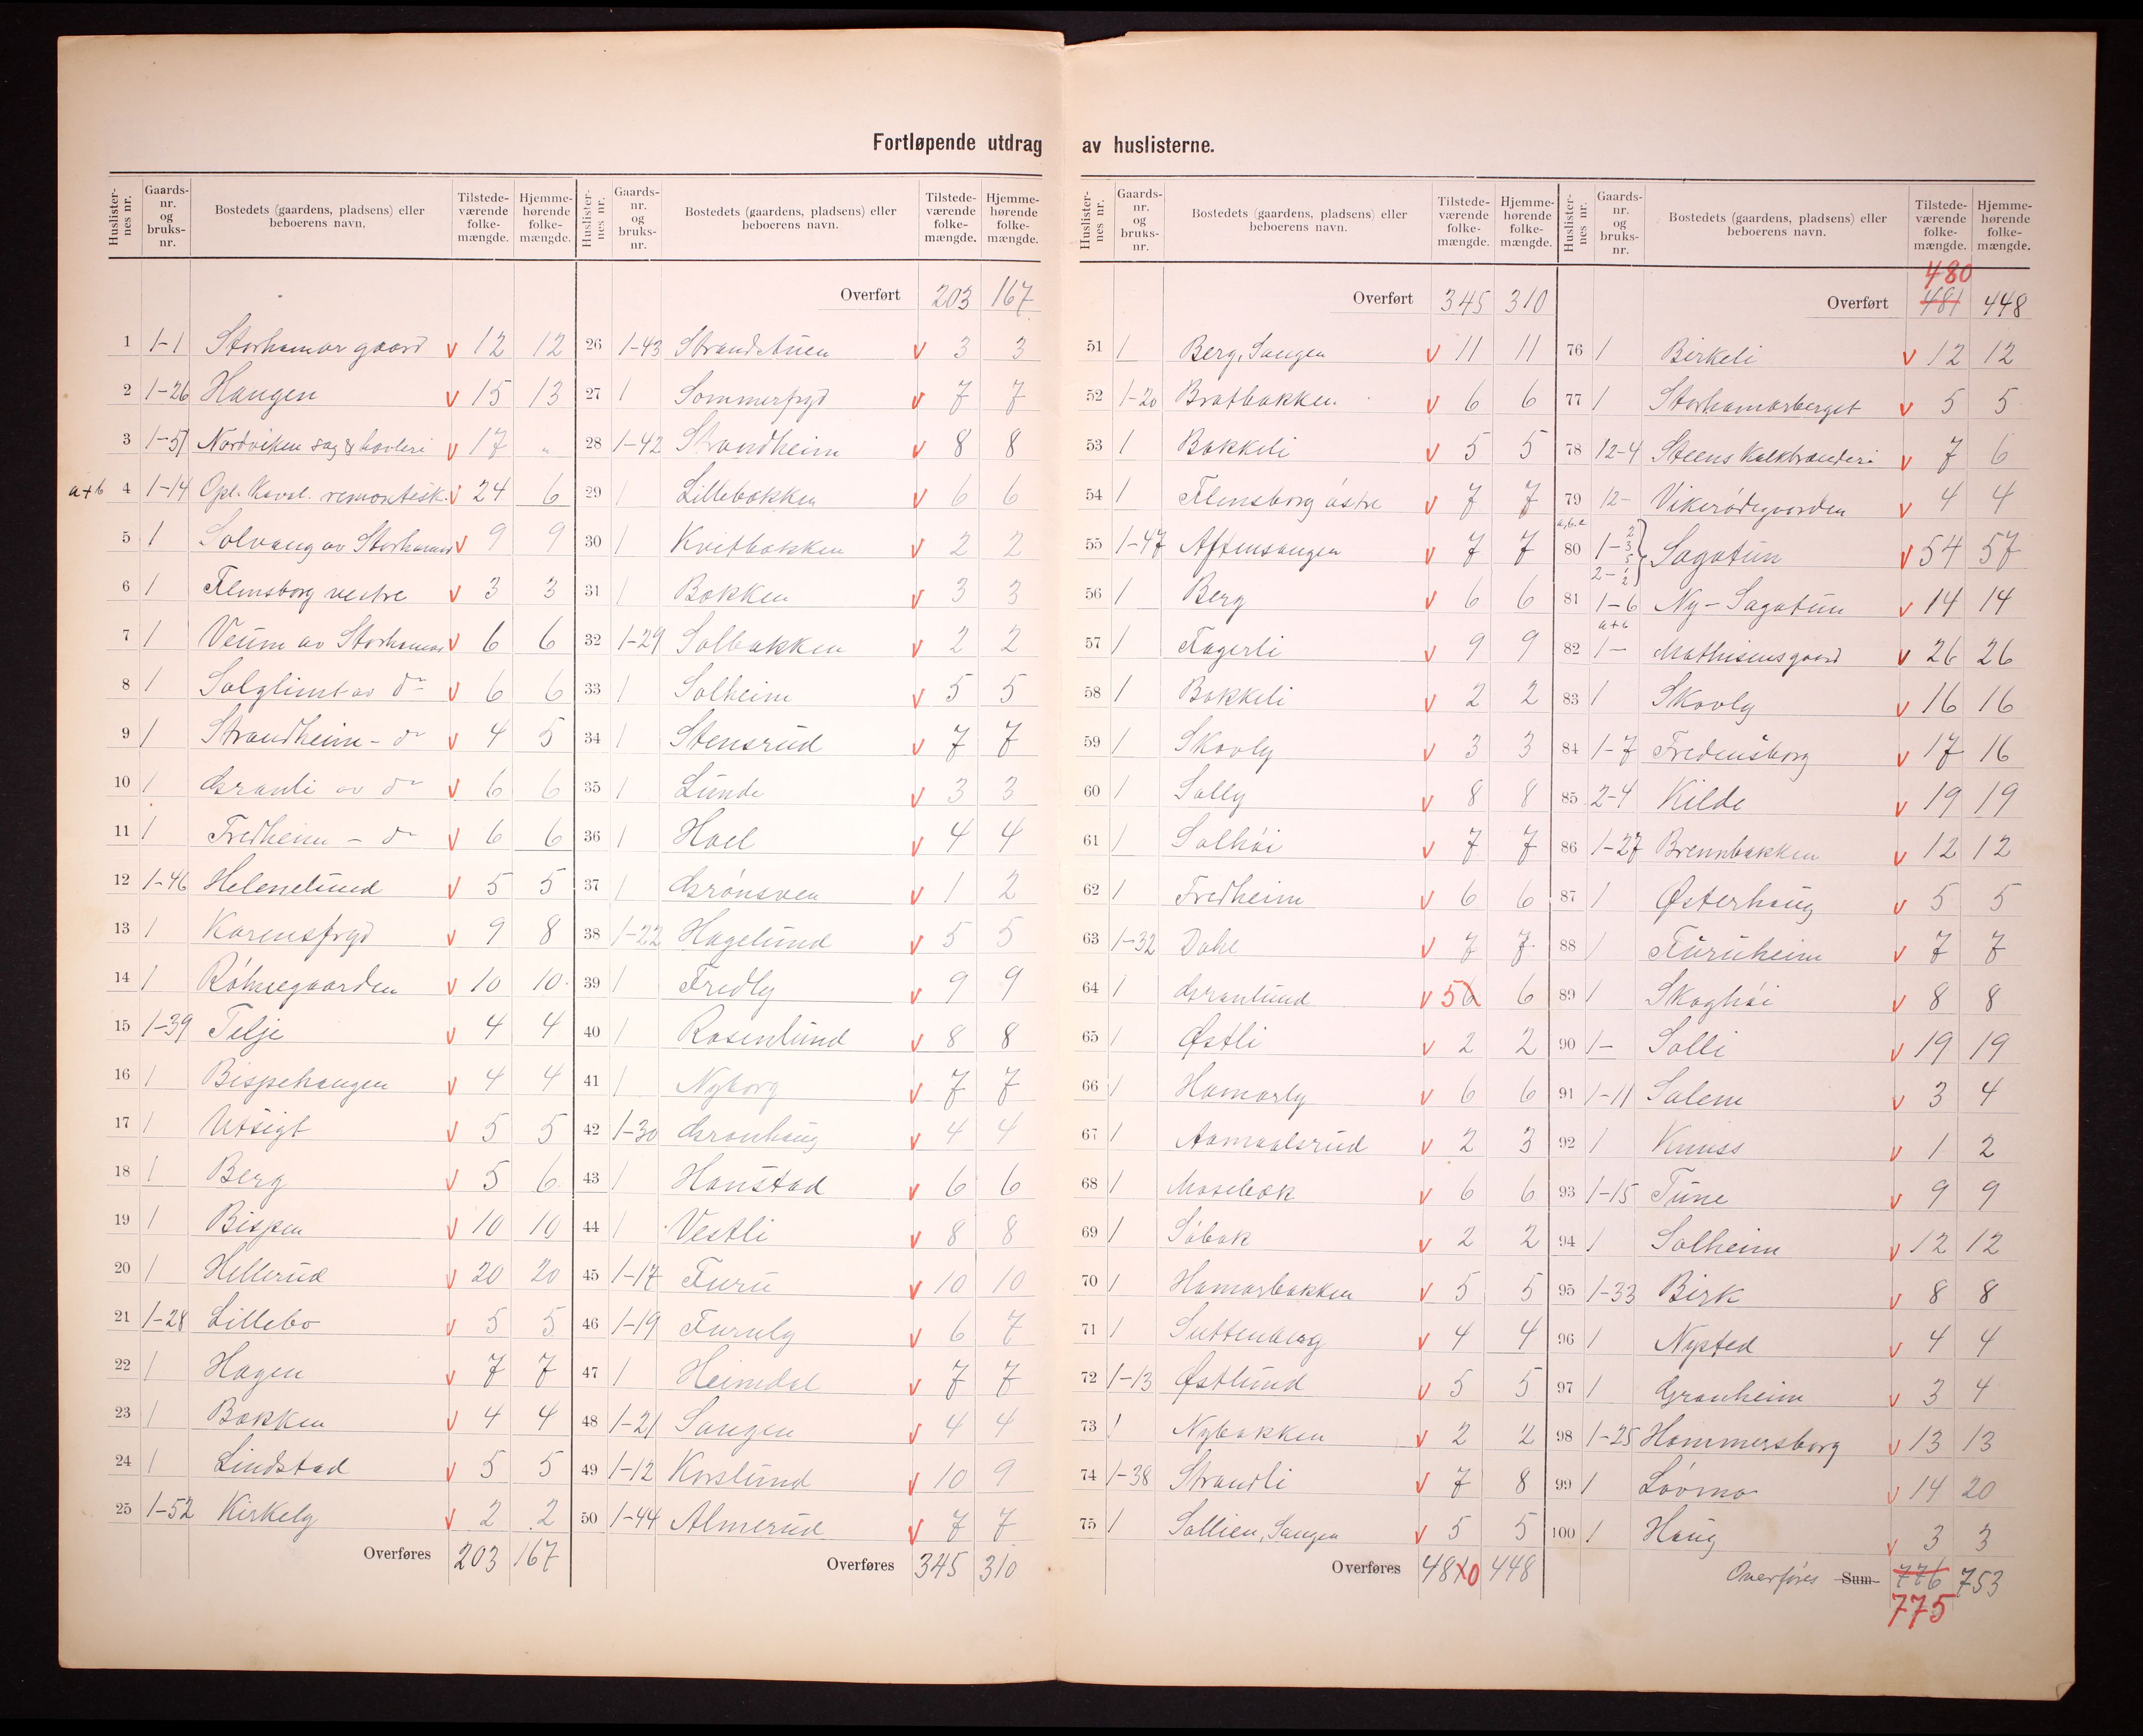 Fortløpende utdrag av huslisterne.
Huslister-nes nr. Gaards-nr. og bruks-nr. Bostedets (gaardens, pladsens) eller beboerens navn. Tilstede-værende folke-mængde. Hjemme-hørende folke-mængde.
1 1-1 Storhamar gaard v 12 12
2 1-26 Haugen v 15 13
3 1-51 Nordviken sag & høvleri v 17 "
a+b 4 1-14 Opl. Kaval. remontesk. v 24 6
5 1 Solvang av Storhamar v 9 9
6 1 Flensborg vestre v 3 3
7 1 Veum av Storhamar v 6 6
8 1 Solglimt av do v 6 6
9 1 Strandheim - do v 4 5
10 1 Granli av do v 6 6
11 1 Fredheim - do v 6 6
12 1-46 Helenelund v 5 5
13 1 Karensfryd v 9 8
14 1 Röhnegaarden v 10 10
15 1-39 Tilje v 4 4
16 1 Bispehaugen v 4 4
17 1 Utsigt v 5 5
18 1 Berg v 5 6
19 1 Bispen v 10 10
20 1 Hellerud v 20 20
21 1-28 Lillebo v 5 5
22 1 Hagen v 7 7
23 1 Bakken v 4 4
24 1 Lindstad v 5 5
25 1-52 Kirkely v 2 2
Overføres 203 167
Huslister-nes nr. Gaards-nr. og bruks-nr. Bostedets (gaardens, pladsens) eller beboerens navn. Tilstede-værende folke-mængde. Hjemme-hørende folke-mængde.
Overført 203 167
26 1-43 Strandstuen v 3 3
27 1 Sommerfryd v 7 7
28 1-42 Strandheim v 8 8
29 1 Lillebakken v 6 6
30 1 Kvitbakken v 2 2
31 1 Bakken v 3 3
32 1-29 Solbakken v 2 2
33 1 Solheim v 5 5
34 1 Stensrud v 7 7
35 1 Lunde v 3 3
36 1 Hoel v 4 4
37 1 Grönsven v 1 2
38 1-22 Hagelund v 5 5
39 1 Fredly v 9 9
40 1 Rosenlund v 8 8
41 1 Nyborg v 7 7
42 1-30 Granhaug v 4 4
43 1 Hanstad v 6 6
44 1 Vestli v 8 8
45 1-17 Furu v 10 10
46 1-19 Furuly v 6 7
47 1 Heimdal v 7 7
48 1-21 Sangen v 4 4
49 1-12 Korslund v 10 9
50 1-44 Almerud v 7 7
Overføres 345 310
Huslister-nes nr. Gaards-nr. og bruks-nr. Bostedets (gaardens, pladsens) eller beboerens navn. Tilstede-værende folke-mængde. Hjemme-hørende folke-mængde.
Overført 345 310
51 1 Berg, Sangen v 11 11
52 1-20 Bratbakken v 6 6
53 1 Bakkeli v 5 5
54 1 Flensborg östre v 7 7
55 1-47 Aftensangen v 7 7
56 1 Berg v 6 6
57 1 Fagerli v 9 9
58 1 Bakkeli v 2 2
59 1 Skovly v 3 3
60 1 Solly v 8 8
61 1 Solhöi v 7 7
62 1 Fredheim v 6 6
63 1-32 Dahl v 7 7
64 1 Granlund v 5 6 6
65 1 Østli v 2 2
66 1 Hamarly v 6 6
67 1 Aamaalsrud v 2 3
68 1 Mosebæk v 6 6
69 1 Söbak v 2 2
70 1 Hamarbakken v 5 5
71 1 Suttenberg v 4 4
72 1-13 Østlund v 5 5
73 1 Nybakken v 2 2
74 1-38 Strandli v 7 8
75 1 Sollien, Sangen v 5 5
Overføres 481 0 448
Huslister-nes nr. Gaards-nr. og bruks-nr. Bostedets (gaardens, pladsens) eller beboerens navn. Tilstede-værende folke-mængde. Hjemme-hørende folke-mængde.
480
Overført 481 448
76 1 Birkeli v 12 12
77 1 Storhamarberget v 5 5
78 12-4 Steens Kalkbrænderi v 7 6
79 12- Vikerödegaarden v 4 4
a,b,c 80 1-2 3 5 2-1 2 Sagatun v 54 57
81 1-6 Ny-Sagatun v 14 14
a+b 82 1- Mathisensgaard v 26 26
83 1 Skovly v 16 16
84 1-7 Fredensborg v 17 16
85 2-4 Kilde v 19 19
86 1-27 Brennbakken v 12 12
87 1 Østerhaug v 5 5
88 1 Furuheim v 7 7
89 1 Skoghöi v 8 8
90 1- Solli v 19 19
91 1-11 Salem v 3 4
92 1 Knuss v 1 2
93 1-15 Tune v 9 9
94 1 Solheim v 12 12
95 1-33 Birk v 8 8
96 1 Nysted v 4 4
97 1 Granheim v 3 4
98 1-25 Hammersborg v 13 13
99 1 Lövmo v 14 20
100 1 Haug v 3 3
Overføres Sum 776 753
775